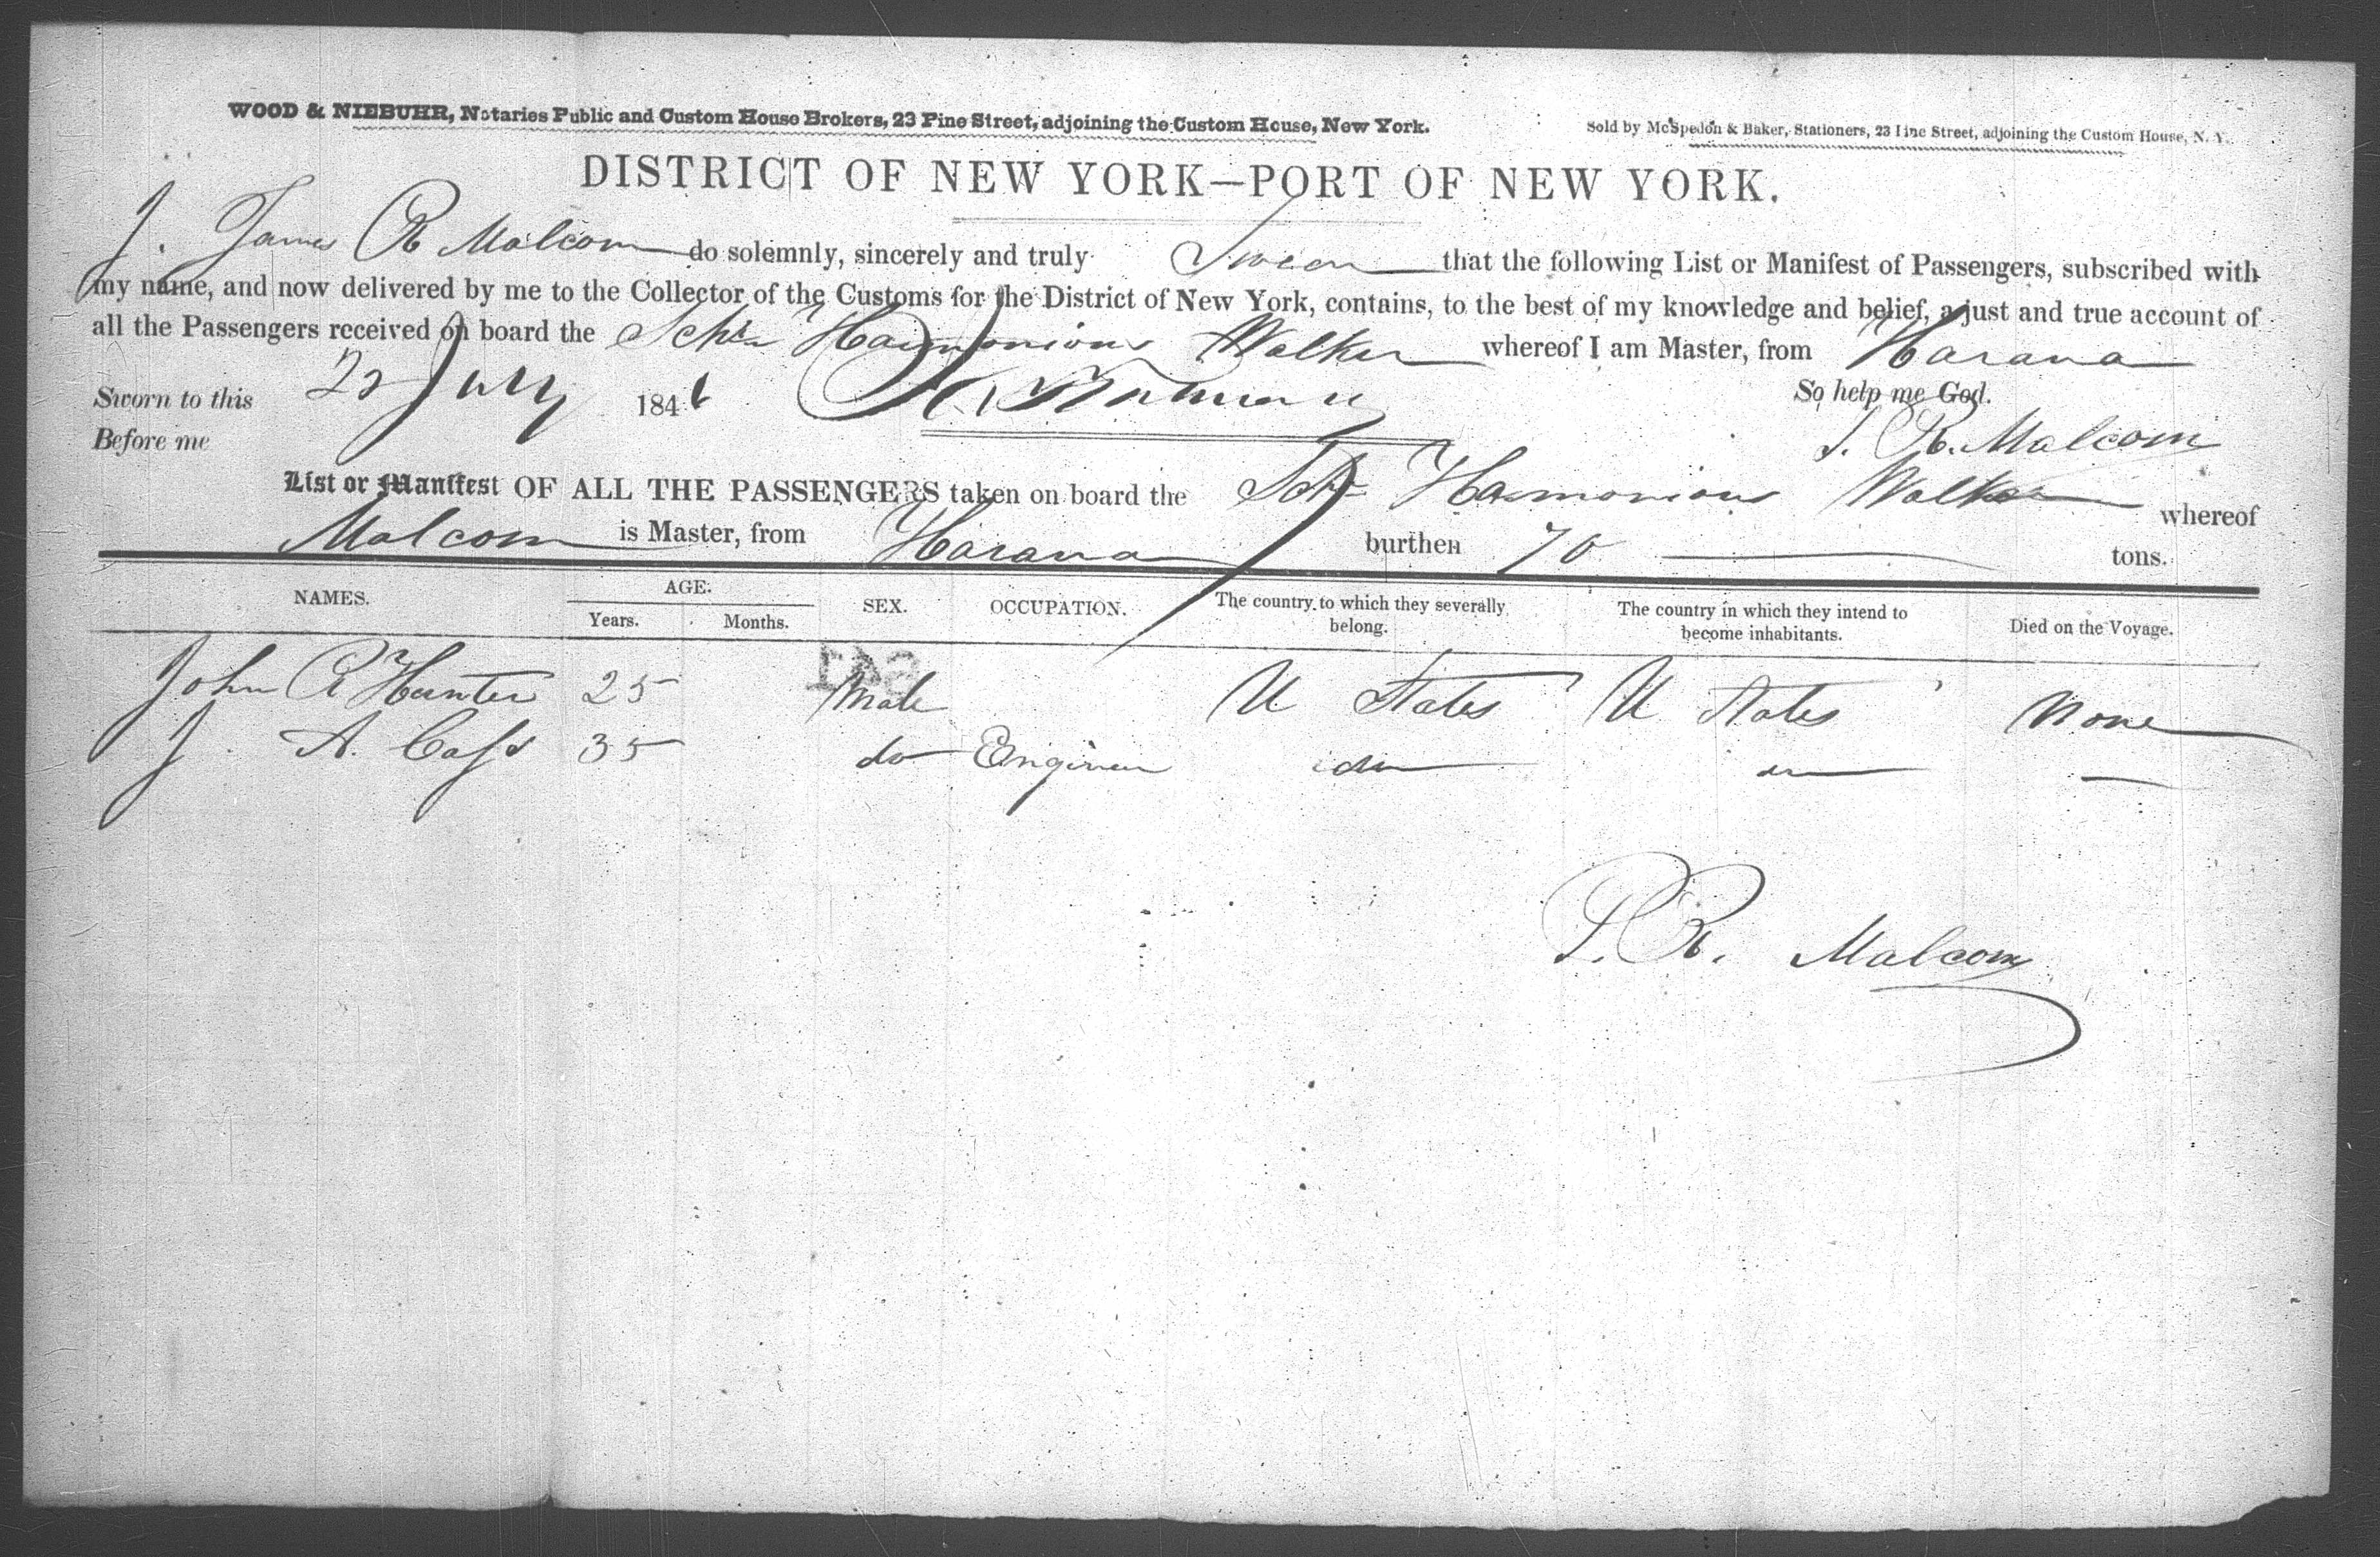 WOOD & NIEBUHR, Notaries Public and Custom House Brokers, 23 Pine Street, adjoining the Custom House, New York.
Sold by McSpedon & Baker, Stationers, 23 Pine Street, adjoining the Custom House, N. Y.
DISTRICT OF NEW YORK—PORT OF NEW YORK.
I. James R Malcom do solemnly, sincerely and truly Swear that the following List or Manifest of Passengers, subscribed with
my name, and now delivered by me to the Collector of the Customs for the District of New York, contains, to the best of my knowledge and belief, a just and true account of
all the Passengers received on board the Schr Harmonious Walker whereof I am Master, from Havana
Sworn to this 22 July 1846 So help me God.
Before me J. R. Malcom
List or Manifest OF ALL THE PASSENGERS taken on board the Schr Harmonious Walker whereof
Malcom is Master, from Havana burthen 70 tons.
NAMES. AGE. SEX. OCCUPATION. The country to which they severally belong. The country in which they intend to become inhabitants. Died on the Voyage.
Years. Months.
John R Hunter 25 Male U States U States None
J. A. Cass 35 do Engineer
J. R. Malcom